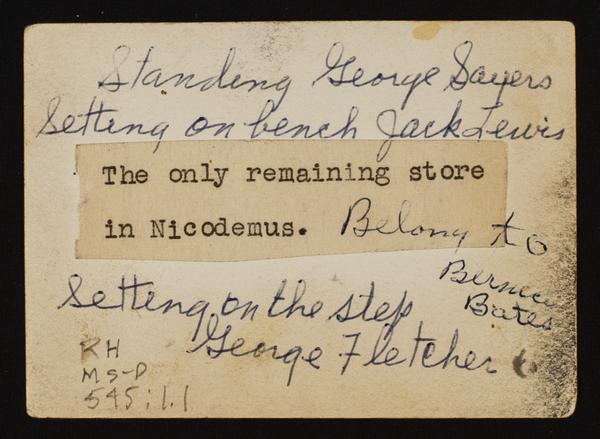 Standing George Sayers
Setting on bench Jack Lewis
The only remaining store
in Nicodemus. Belong to
Bernice
Bates
Setting on the step
George Fletcher
RH
MS-P
545:1.1